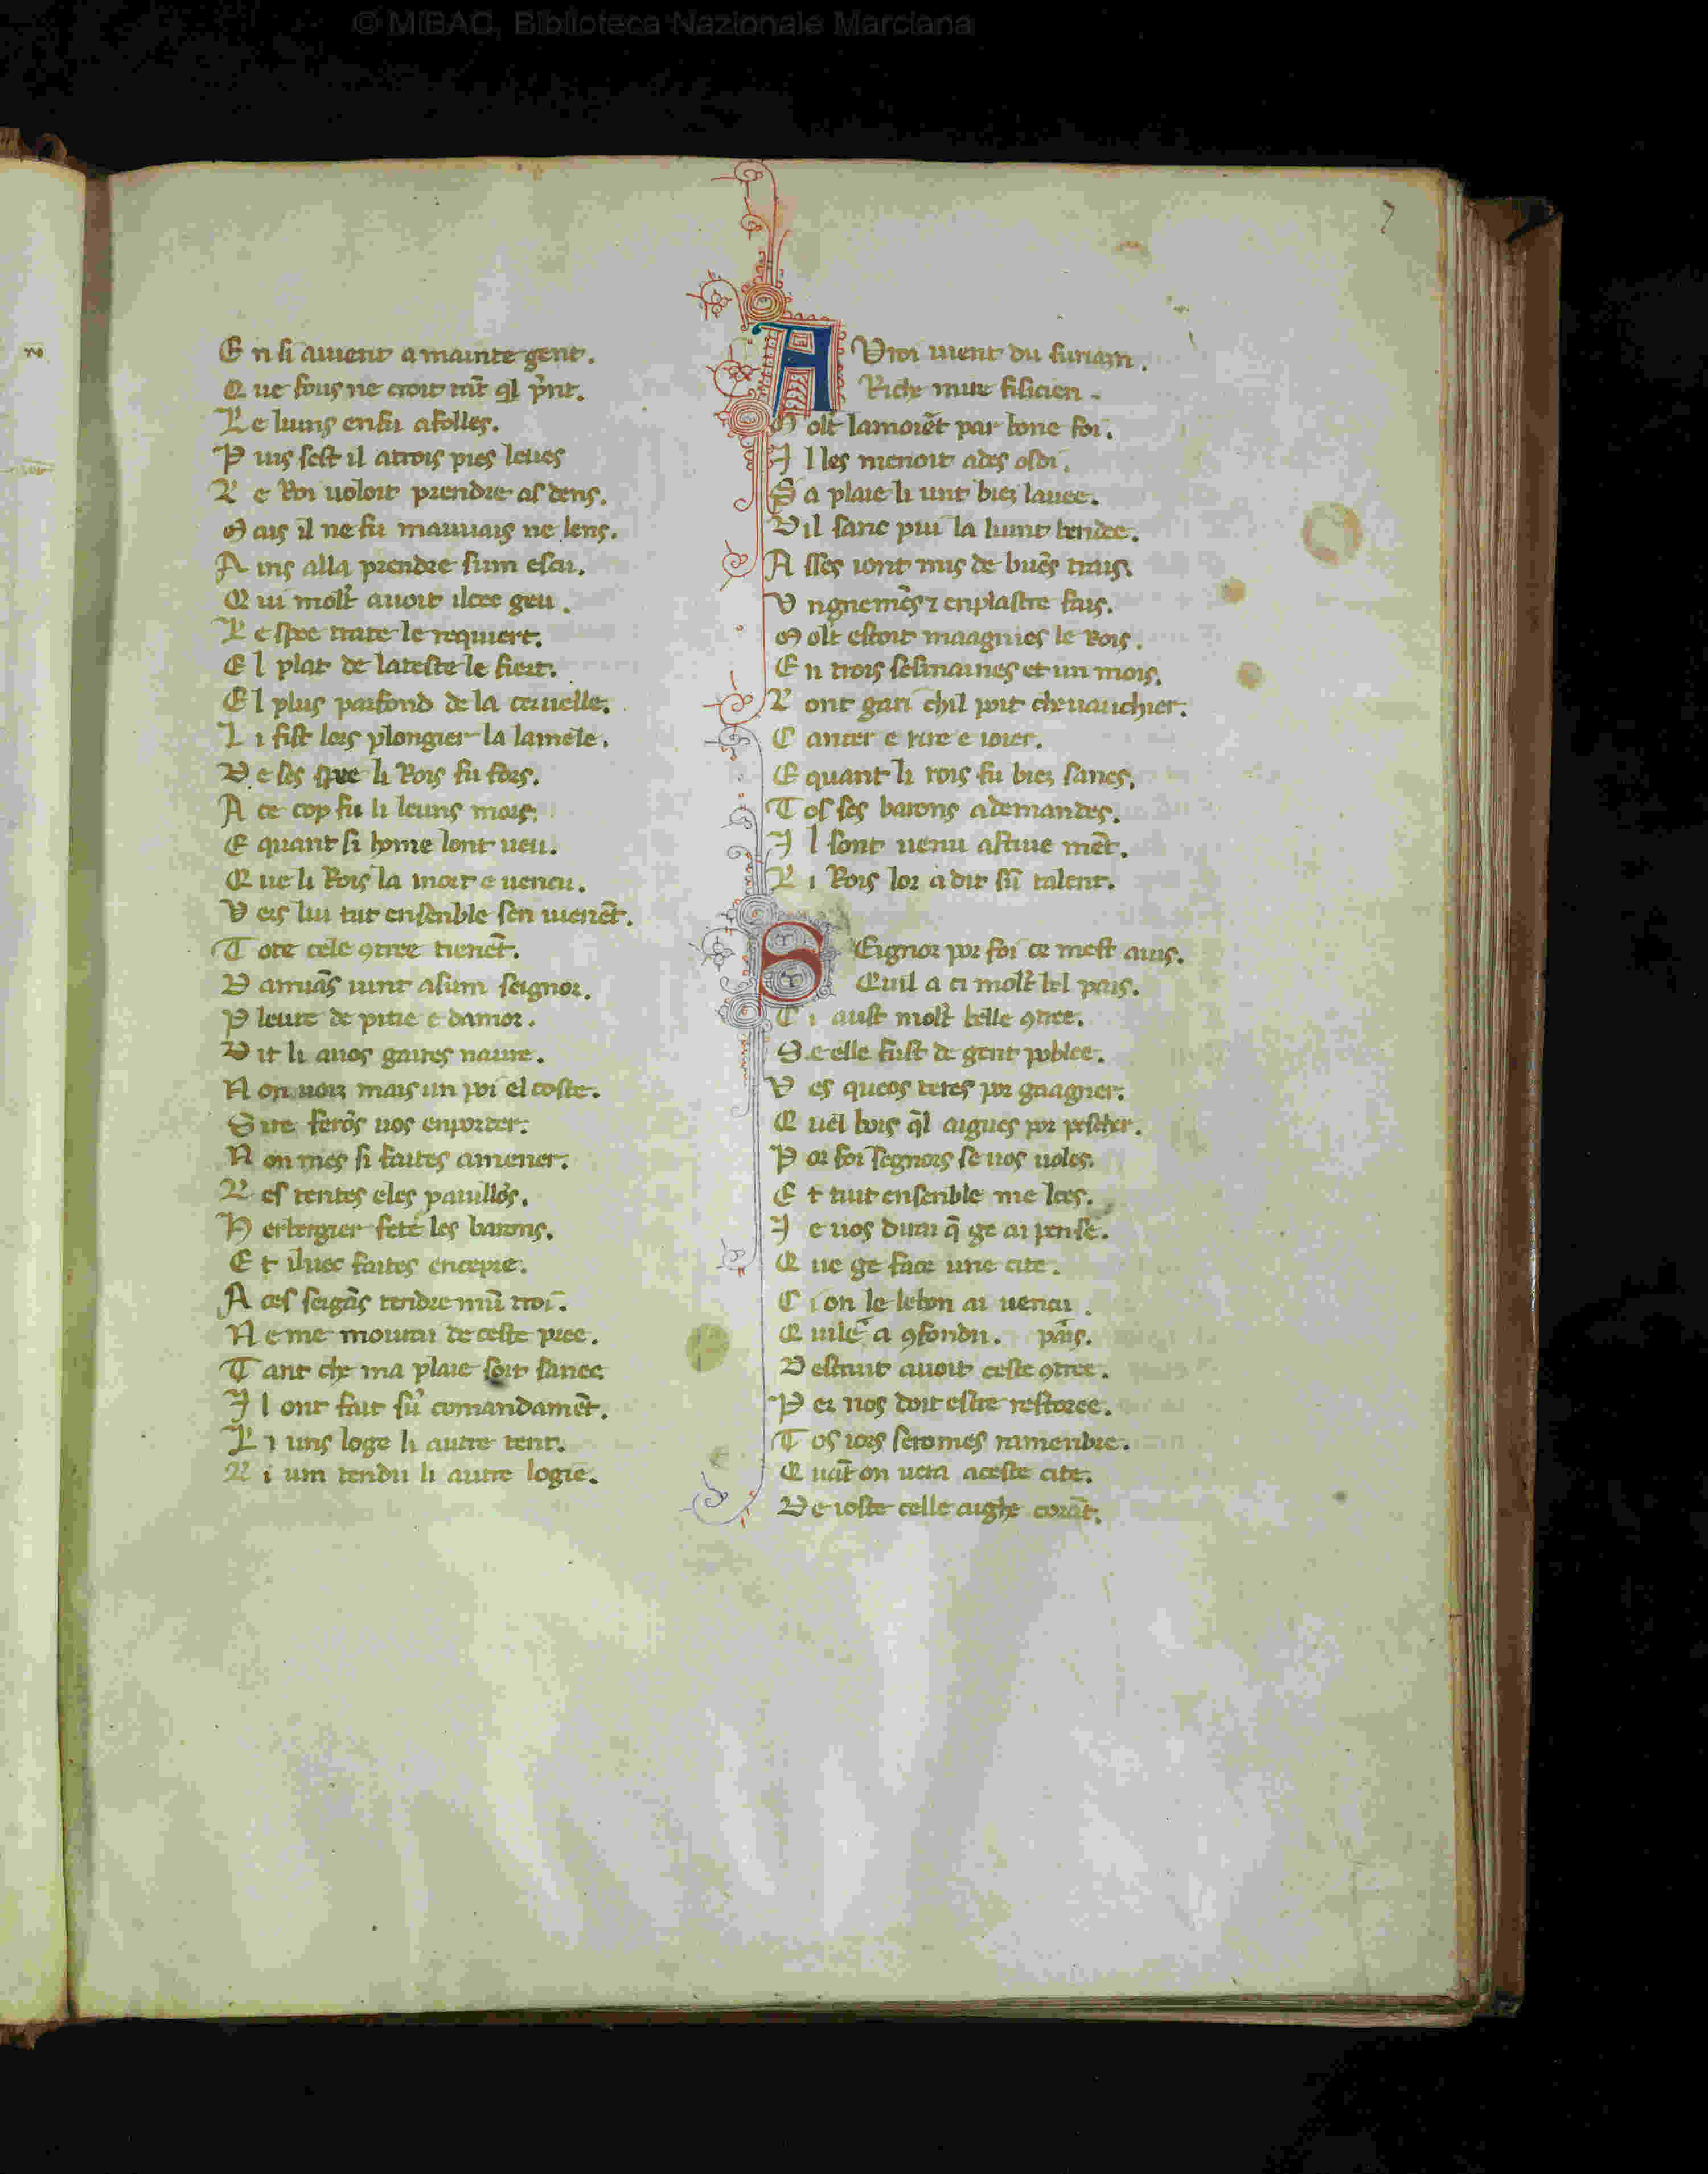 © MiBAC, Biblioteca Nazionale Marciana
7
E nsi auient a mainte gent.
Q ue fous ne croit tr̄t q̄l p̄nt.
L e luins enfu afolles.
P uis sest il atrois pies leues
L e Roi uoloit prendre as dens.
M ais il ne fu mauuais ne lens.
A ins alla prendre sum escu.
Q ui mol̄t auoit ilcee geu.
L espee traite le requiert.
E l plat de lateste le fiert.
E l plus parfond de la ceruelle.
L i fist lers plongier la lamele.
D e ses spee li Rois fu fors.
A ce cop fu li leuns mors.
E quant si home lont ueu.
Q ue li Rois la mort e uencu.
V ers lui tut ensenble sen uienēt.
T ote cele ꝯtree tienēt.
D amāns uint asum seignor.
P leure de pitie e damor.
D it li auos gaires naure.
N on uoir mais un poi el coste.
S ire ferōs uos enporter.
N on mes si faites amener.
L es tentes eles pauillōs.
H erbergier fete les barons.
E t iluec faites encepre.
A ces sergās tendre mū troi.
N e me mourai de ceste pree.
T ant che ma plaie soit sanee
I l ont fait sū comandamēt.
L i uns loge li autre tent.
L i um tendu li autre logie.
A Vroi uient du surian.
Riche mire fisicien.
M olt lamoiēt par bone foi.
I l les menoit ades osoi.
S a plaie li unt biē lauee.
D il sanc pui la lunt bendee.
A sses iont mis de buēs trais.
V ngnemēs ⁊ enplastre fais.
M olt estoit maagnies le Rois.
E n trois sesmaines et un mois.
L ont gari chil poit cheuauchier.
C anter e rire e ioier.
E quant li rois fu biē sanes.
T os ses barons ademandes.
I l sont uenu astiue mēt.
L i Rois lor a dit sū talent.
S Eignor por foi ce mest auis.
Quil a ci mol̄t bel pais.
C i aust mol̄t belle ꝯtree.
S e elle fust de gent poblee.
V es queos teres por gaagner.
Q uel bois q̄l aigues por pescher.
P or foi segnors se uos uoles.
E t tuit ensenble me loes.
I e uos dirai q̄ ge ai pense.
Q ue ge face une cite.
C i on le lebon ai uencu.
Q uile a ꝯfondu. pais.
D estruit auoit ceste ꝯtree.
P er nos doit estre restoree.
T os iors seromes ramenbre.
Q uāt on uera aceste cite.
D e ioste celle aighe corāt.